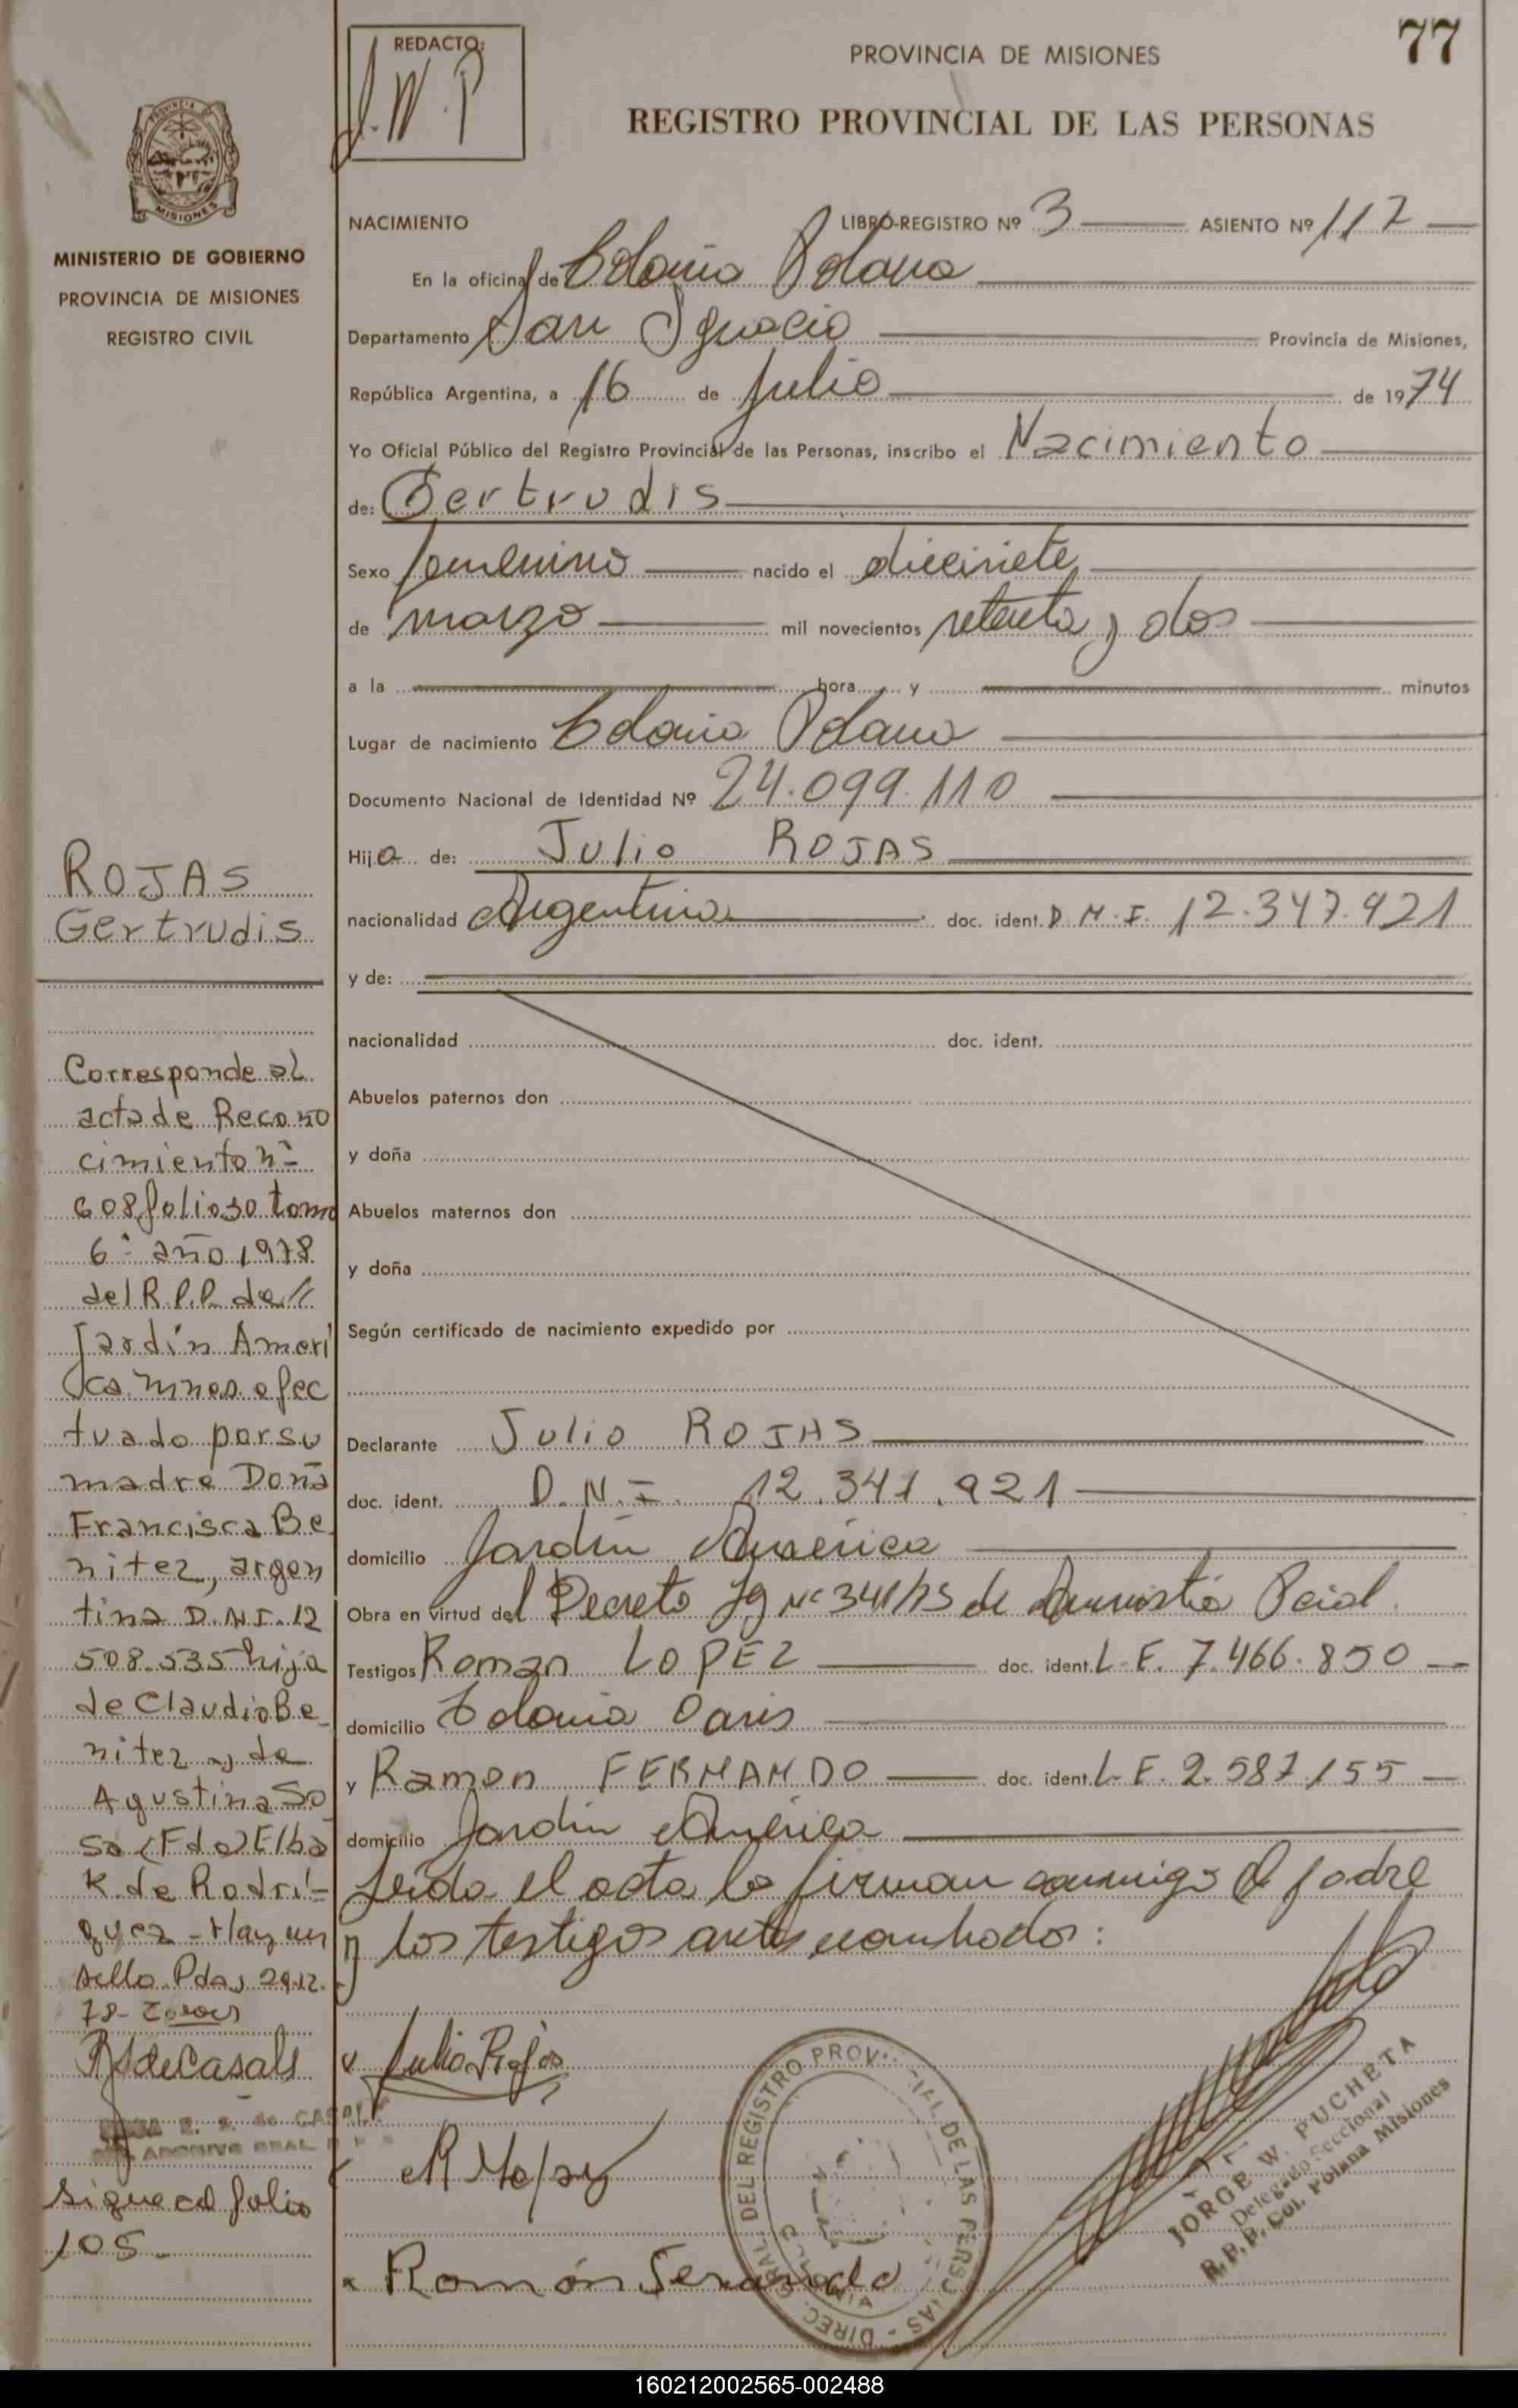 77
REDACTO:
J.W.P
PROVINCIA DE MISIONES
REGISTRO PROVINCIAL DE LAS PERSONAS
PROVINCIA DE
MISIONES
MINISTERIO DE GOBIERNO
PROVINCIA DE MISIONES
REGISTRO CIVIL
NACIMIENTO LIBRO-REGISTRO Nº 3 ASIENTO Nº 117
En la oficina de Colonia Polana
Departamento San Ignacio Provincia de Misiones,
República Argentina, a 16 de Julio de 1974
Yo Oficial Público del Registro Provincial de las Personas, inscribo el Nacimiento
de: Gertrudis
Sexo femenino nacido el diecisiete
de marzo mil novecientos setenta y dos
a la hora y minutos
Lugar de nacimiento Colonia Polana
Documento Nacional de Identidad Nº 24.099.110
Hija de: Julio ROJAS
nacionalidad Argentina doc. ident. D.N.I. 12.347.921
y de:
nacionalidad doc. ident.
Abuelos paternos don
y doña
Abuelos maternos don
y doña
Según certificado de nacimiento expedido por
Declarante Julio ROJAS
doc. ident. D.N.I. 12.341.921
domicilio Jardín América
Obra en virtud del Decreto Lg Nº 341/75 de Amnistía Pcial.
Testigos Roman LOPEZ doc. ident. L.E. 7.466.850
domicilio Colonia Oasis
y Ramon FERNANDO doc. ident. L.E. 2.587.155
domicilio Jardín América
Leída el acta la firman conmigo el padre
y los testigos antes nombrados:
Julio Rojas
Román Fernando
DIREC. GRAL. DEL REGISTRO PROVINCIAL DE LAS PERSONAS
JORGE W. PUCHETA
Delegado Seccional
R.P.P. Col. Polana Misiones
ROJAS
Gertrudis
Corresponde al
acta de Recono
cimiento nº
608 folio 30 tomo
6º año 1978
del R.P.P. de
Jardín Améri
ca Mnes. efec
tuado por su
madre Doña
Francisca Be
nitez, argen
tina D.N.I. 12
508.535 hija
de Claudio Be
nitez y de
Agustina So
sa (Fdo) Elba
K. de Rodrí-
guez - Hay un
sello. Pdas 29.12.
78-
de Casals
E. S. de CASALS
ARCHIVO GRAL. R P P
Sigue al folio
105
160212002565-002488